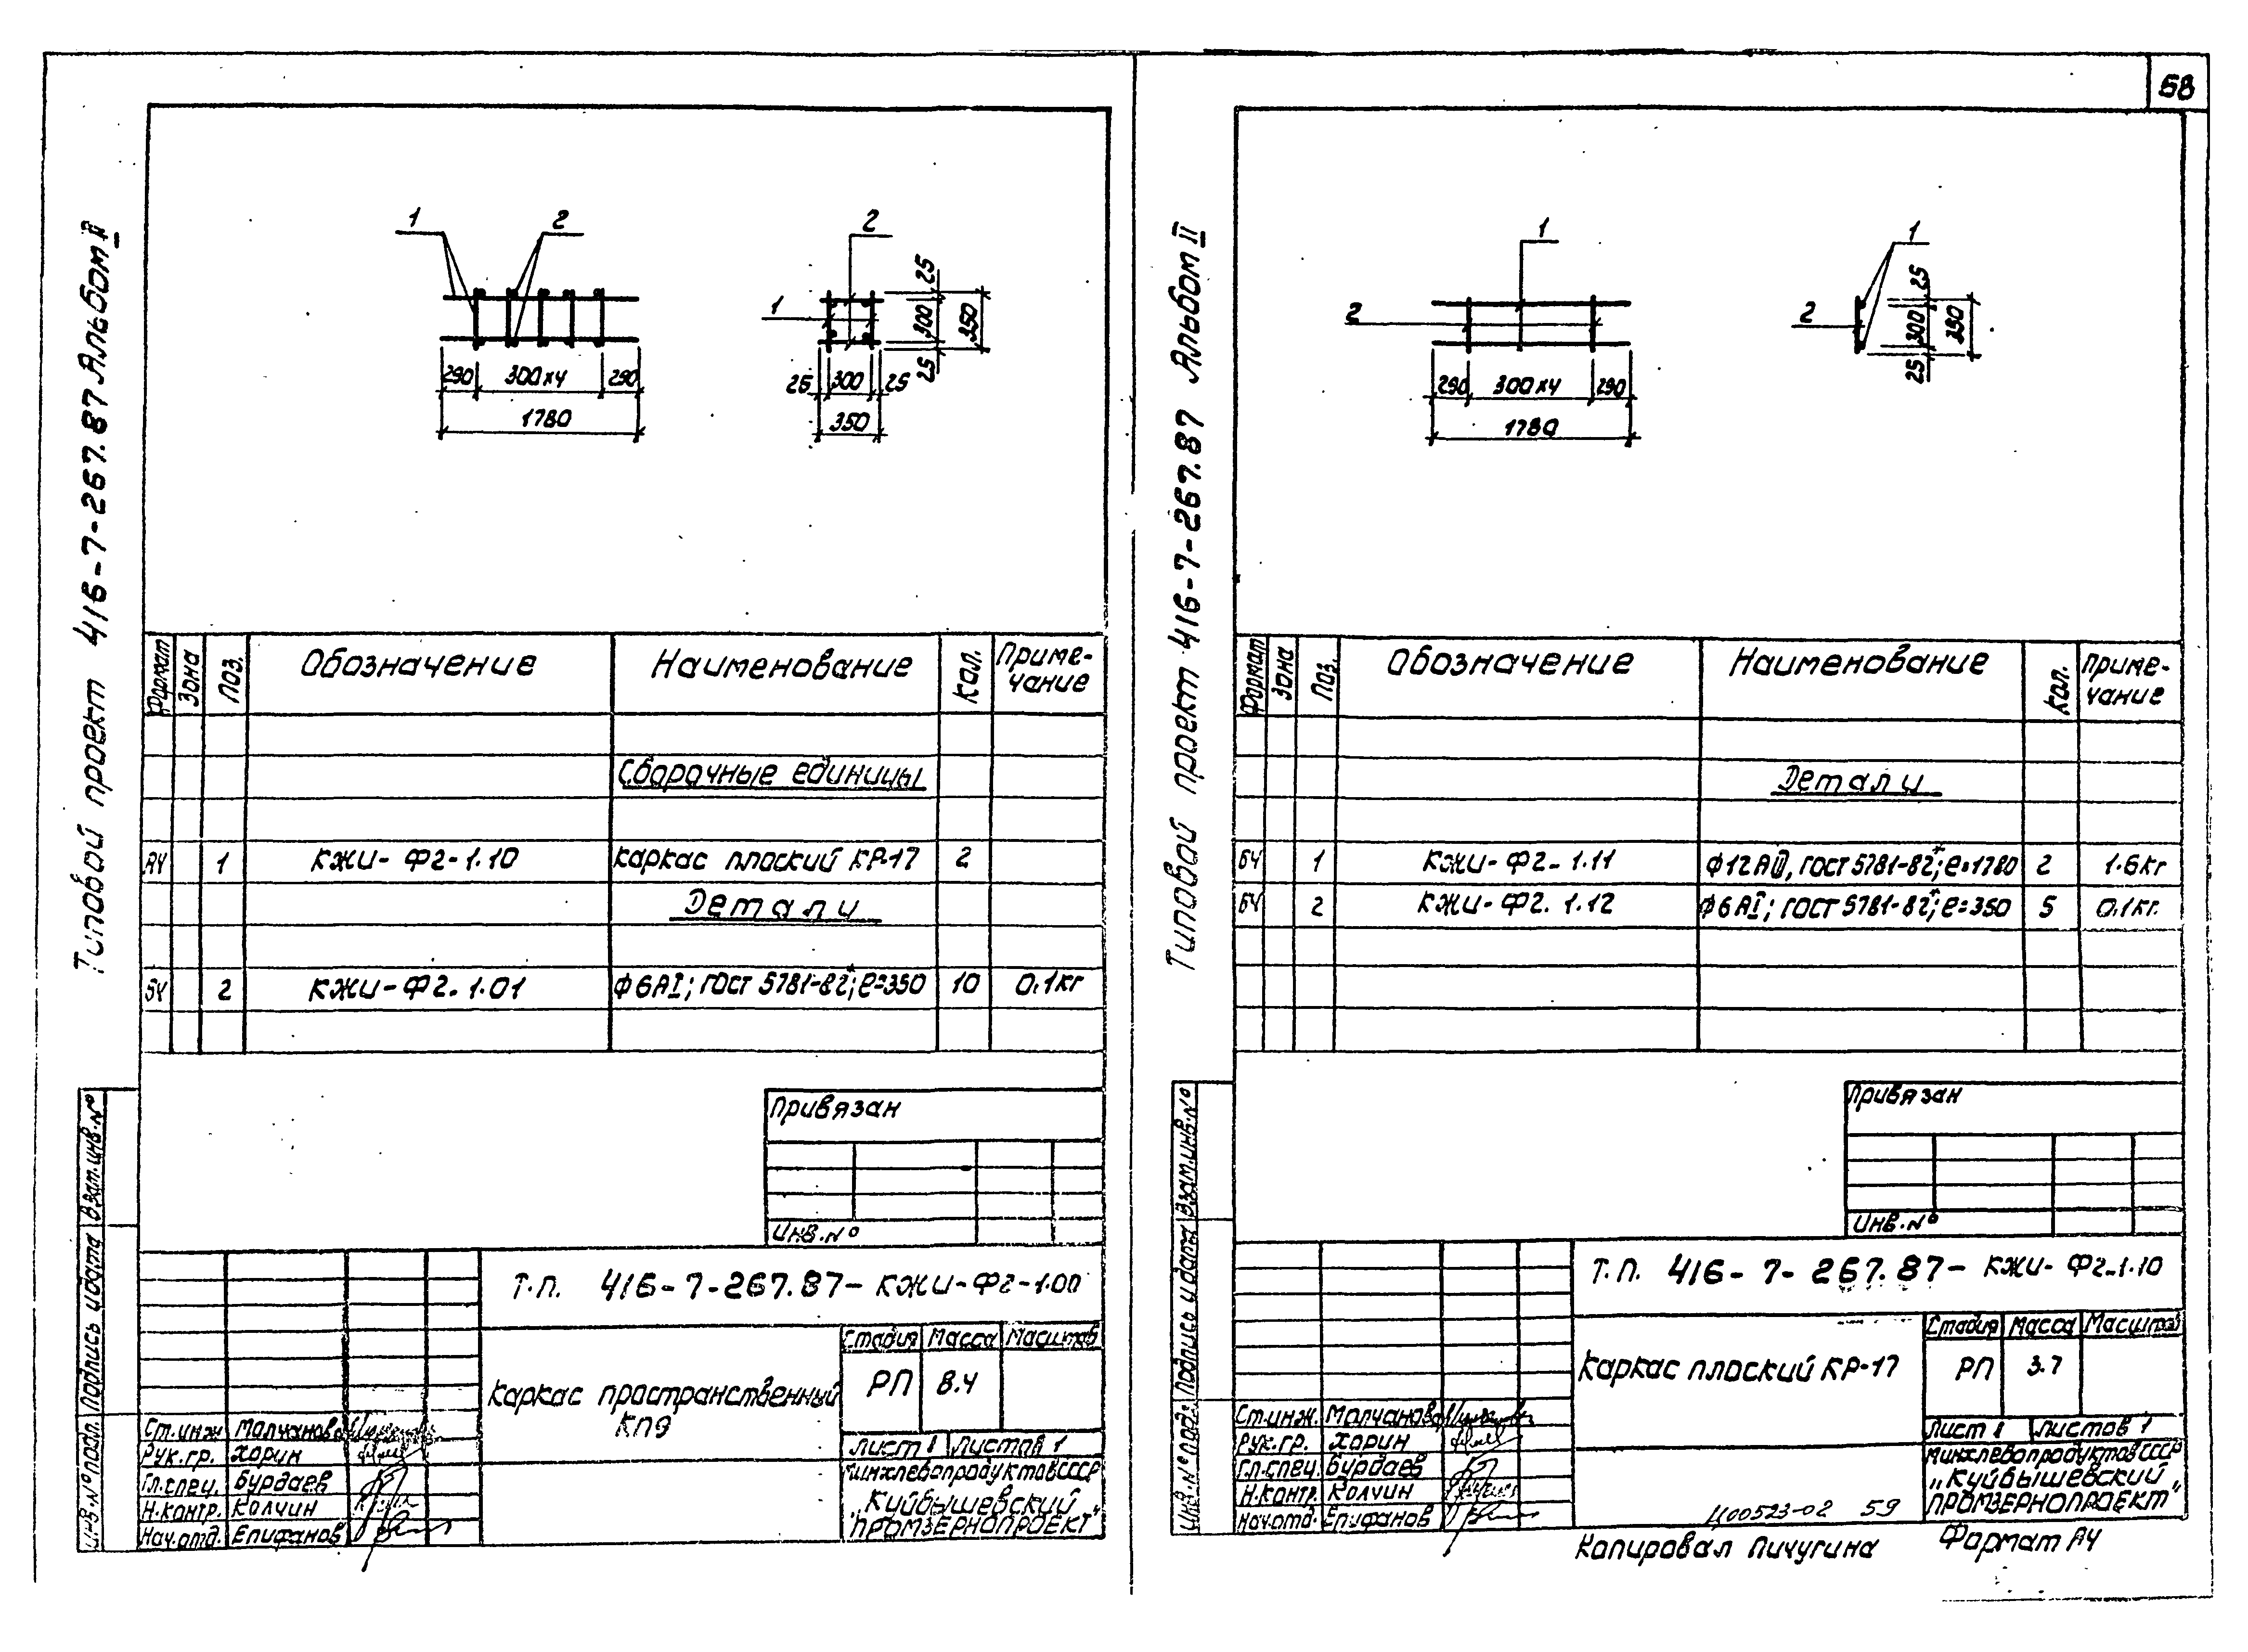 58
Типовой проект 416-7-267.87 Альбом II
1 2 2
1
290 300х4 290
1780
25 300 25
350
25 300 25
350
Формат Зона Поз. Обозначение Наименование Кол. Приме-
чание
Сборочные единицы
А4 1 КЖИ-Ф2-1.10 Каркас плоский КР-17 2
Детали
Б4 2 КЖИ-Ф2-1.01 Ф6АI; ГОСТ 5781-82*; ℓ=350 10 0.1кг
Привязан
Инв.№
Инв.№ подл. Подпись и дата Взам.инв.№
Т.П. 416-7-267.87- КЖИ-Ф2-1.00
Каркас пространственный
КП9
Стадия Масса Масштаб
РП 8.4
Лист 1 Листов 1
Минхлебопродуктов СССР
"Куйбышевский
ПРОМЗЕРНОПРОЕКТ"
Ст.инж. Молчанова
Рук.гр. Хорин
Гл.спец. Бурдаев
Н.контр. Колчин
Нач.отд. Епифанов
Типовой проект 416-7-267.87 Альбом II
1 1
2 2
290 300х4 290
1780
25 300 25
350
Формат Зона Поз. Обозначение Наименование Кол. Приме-
чание
Детали
Б4 1 КЖИ-Ф2-1.11 Ф12АIII, ГОСТ 5781-82*; ℓ=1780 2 1.6кг
Б4 2 КЖИ-Ф2.1.12 Ф6АI; ГОСТ 5781-82*; ℓ=350 5 0.1кг.
Привязан
Инв.№
Инв.№ подл. Подпись и дата Взам.инв.№
Т.П. 416-7-267.87- КЖИ-Ф2-1.10
Каркас плоский КР-17
Стадия Масса Масштаб
РП 3.7
Лист 1 Листов 1
Минхлебопродуктов СССР
"Куйбышевский
ПРОМЗЕРНОПРОЕКТ"
Ст.инж. Молчанова
Рук.гр. Хорин
Гл.спец. Бурдаев
Н.контр. Колчин
Нач.отд. Епифанов
Ц00523-02 59
Копировал Пичугина Формат А4